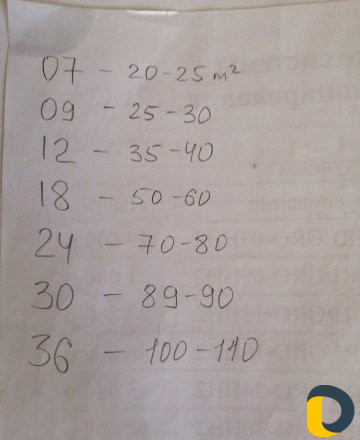 07 - 20-25 м²
09 - 25-30
12 - 35-40
18 - 50-60
24 - 70-80
30 - 89-90
36 - 100-110